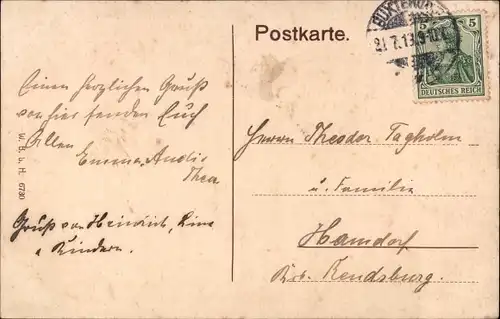 Postkarte.
BUXTEHUDE
21.7.13.
5 5
DEUTSCHES REICH
Einen herzlichen Gruß
von hier senden Euch
Allen
Emma, 
Thea
Gruß von Heinrich, Line
u Kindern.
W. B. u. H. 6730
Herrn Theodor Tagholm
u. Familie
Hamdorf
Krb. Rendsburg.